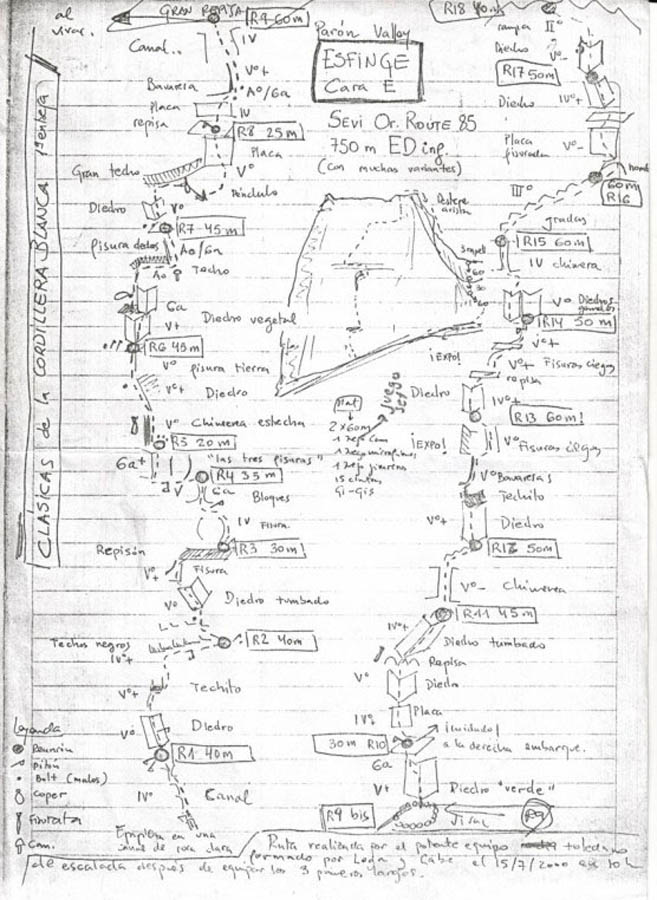 CLASICAS de la CORDILLERA BLANCA
Parón Valley
ESFINGE
Cara E
SEVI Or. ROUTE 85
750 m ED inf.
(con muchas variantes)
al vivac.
GRAN REPISA
R9 60m
Canal..
IV
V°+
Bavaresa
A0/6a
Placa
IV
repisa
R8 25 m
Placa
Gran techo
V°
Péndulo
Diedro
V°
R7 45 m
fisura dedos
A0/6a
A0
Techo
6a
Diedro vegetal
V+
R6 45m
V° fisura tierra
V°+
Diedro
V° Chimenea estrecha
R5 20m
6a+
"las tres fisuras"
V
R4 35 m
6a
Bloques
IV
Fisura.
Repisón
R3 30m
V°+
Fisura
V°
Diedro tumbado
Techos negros
R2 40m
IV°+
V°+
Techito
V°
Diedro
R1 40m
IV°
Canal
Empieza en una
canal de roca clara
Leyenda
Reunión
Pitón
Bolt (malos)
Coper
Cam.
R18 40m
rampa II°
Diedro
V°-
R17 50m
Diedro
IV°+
Placa
fisurada
V°-
60m
R16
III°
gradas
R15 60m
IV chimenea
V°
Diedros
R14 50 m
V°+
V°+ Fisuras ciegas
repisa
¡EXPO!
Diedro
IV°+
R13 60m!
¡EXPO!
V°
Fisuras ciegas
V° Bavaresas
Techito
V°+
Diedro
R12 50m
V°-
Chimenea
R11 45m
IV°+
Diedro tumbado
Repisa
V°
Diedro
Placa
IV°
30m R10
¡cuidado!
a la derecha embarque.
6a
V+
Diedro "verde"
R9 bis
R9
Destrepe
arista
60
30
60
Mat
2x60m
1 juego cam
15 cintas
Gi-Gis
Ruta realizada por el potente equipo toledano
de escalada después de equipar los 3 primeros largos.
formado por Loda y Gabe el 15/7/2000